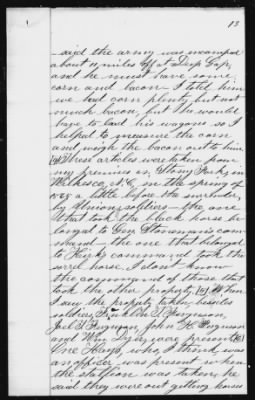 13
said the army was incamped
about 11 miles off at Deep Gap,
and he must have some
corn and bacon - I told him
we had corn plenty but not
much bacon, but he would
have to load his wagons so I
helped to measure the corn
and weigh the bacon out to him
These articles were taken from
my premises in Stony Fork, in
Wilkes co, N.C, in the spring of
1865 a little before the surrender,
by Union soldiers - the one
that took the black horse be
longed to Gen Stoneman's com-
mand - the one that belonged
to Kirk's command took the
sorrel horse. I don't know
the command of those that
took the other property. When
I saw the property taken, besides
soldiers, Franklin Ferguson,
Joel Ferguson, John H. Ferguson
and Wm were present
One Hays, who, I think, was
an officer was present when
the stallion was taken, he
said they were out getting horses